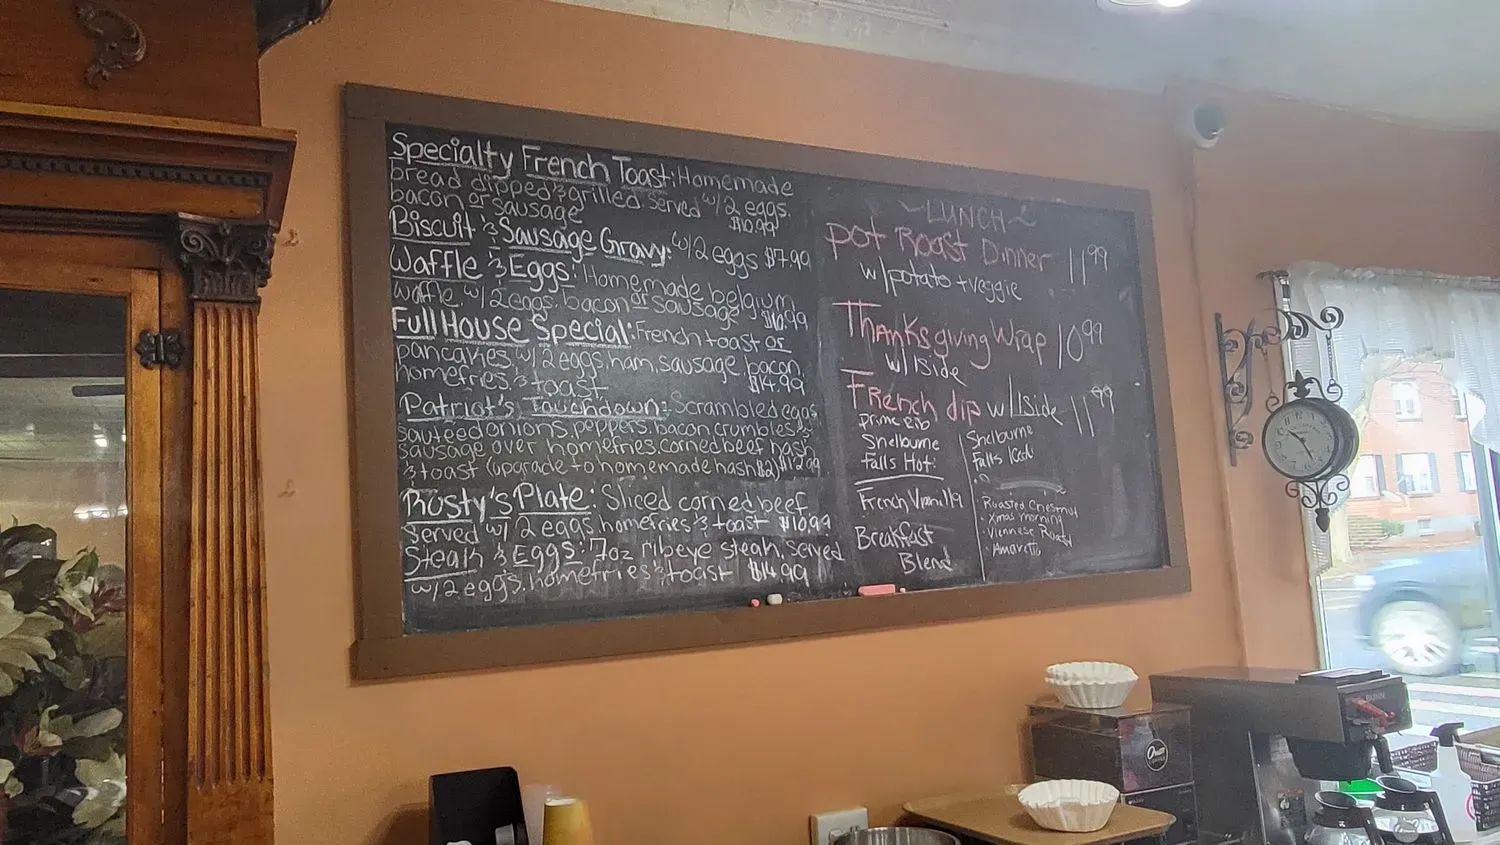 Specialty French Toast: Homemade
bread dipped & grilled served w/2 eggs.
bacon or sausage $10.99
Biscuit & Sausage Gravy: w/2 eggs $7.99
Waffle & Eggs: Homemade belgium
waffle w/2 eggs. bacon or sausage $10.99
Full House Special: French toast or
pancakes w/2 eggs, ham, sausage, bacon,
homefries, & toast $14.99
Patriot's Touchdown: Scrambled eggs
sauteed onions, peppers, bacon crumbles &
sausage over homefries, corned beef hash
& toast (upgrade to homemade hash $2) $12.99
Rusty's Plate: Sliced corned beef
served w/ 2 eggs, homefries & toast $10.99
Steak & Eggs: 7oz ribeye steak, served
w/2 eggs, homefries & toast $14.99
LUNCH
Pot Roast Dinner 11.99
w/potato + veggie
Thanksgiving Wrap 10.99
w/1side
French dip w/1side 11.99
prime rib
Shelburne
Falls Hot:
French Vanilla
Breakfast
Blend
Shelburne
Falls Iced
Roasted Chestnut
· Xmas morning
· Viennese Roast
· Amaretto
BUNN